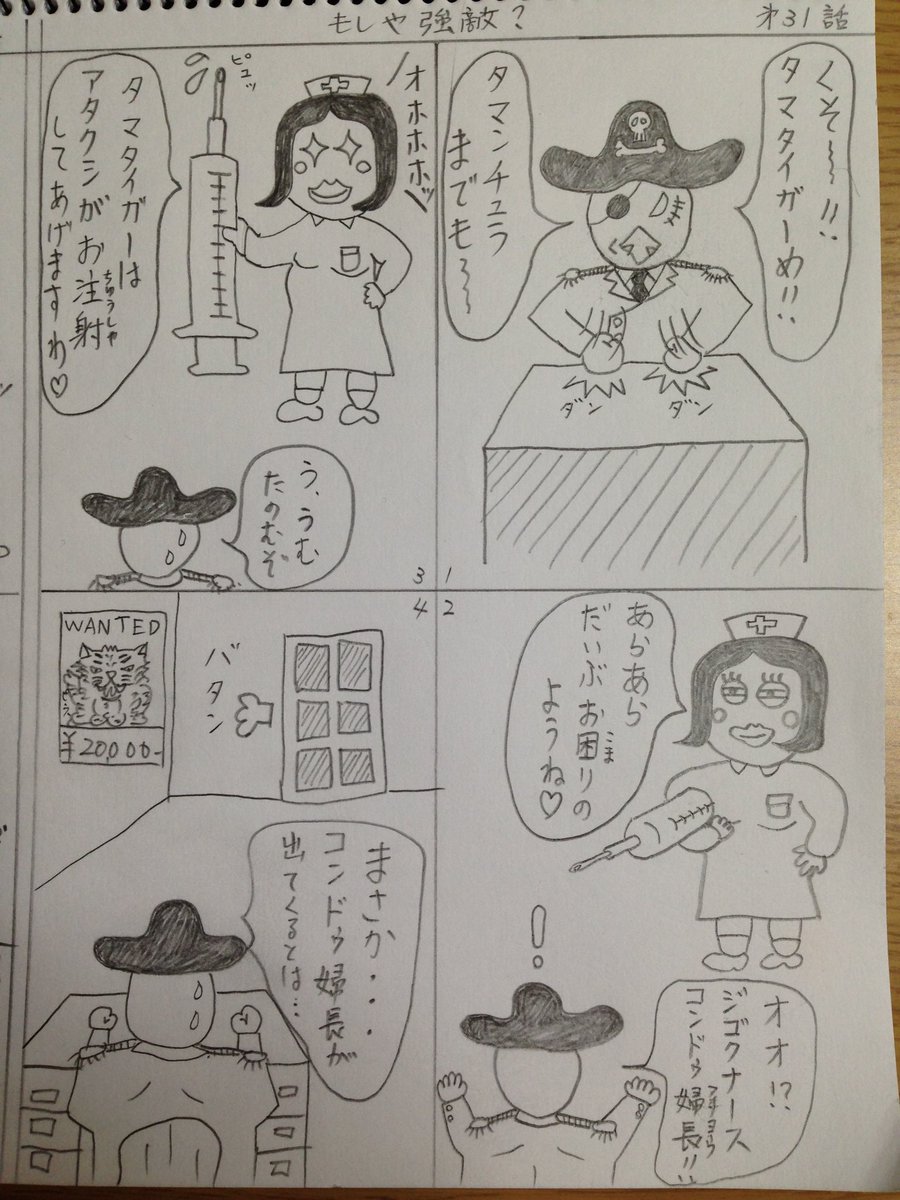 もしや強敵?
才31話
くそ〜〜!!
タマタイガーめ!!
タマンチュラ
までも〜〜
ダン
ダン
1
あらあら
だいぶお困りの
こま
ようね♡
!
オオ!?
ジゴクナース
コンドゥ婦長!!
2
オホホホッ
ピュッ
タマタイガーは
アタクシがお注射
ちゅうしゃ
してあげますわ♡
う、うむ
たのむぞ
3
4
WANTED
¥20,000-
バタン
まさか・・・
コンドゥ婦長が
出てくるとは…